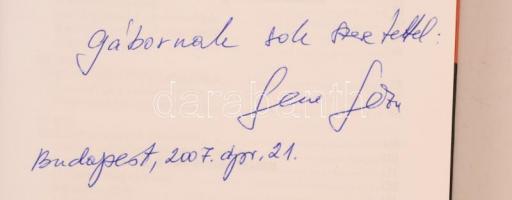 Gábornak sok szeretettel:
Budapest, 2007. ápr. 21.